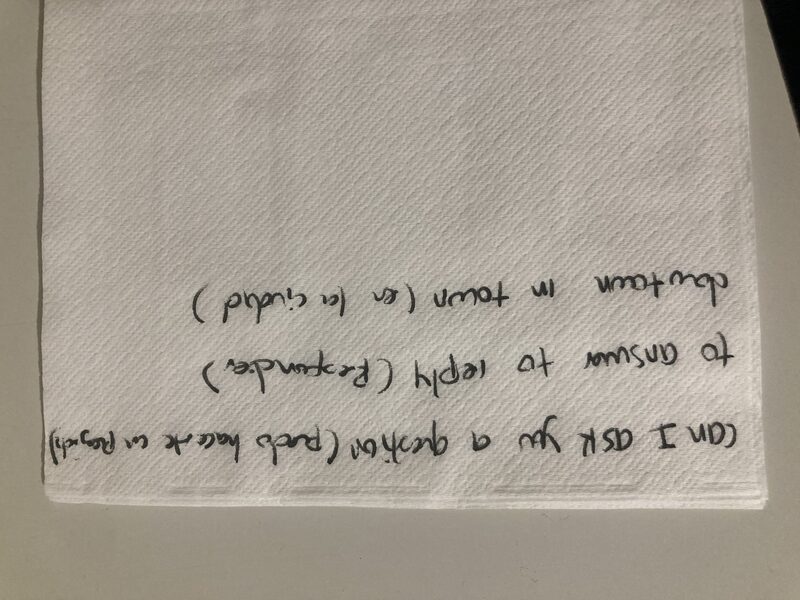 can I ask you a question (puedo hacerte un
to answer to reply (Responder)
dowtown in town (en la ciudad)